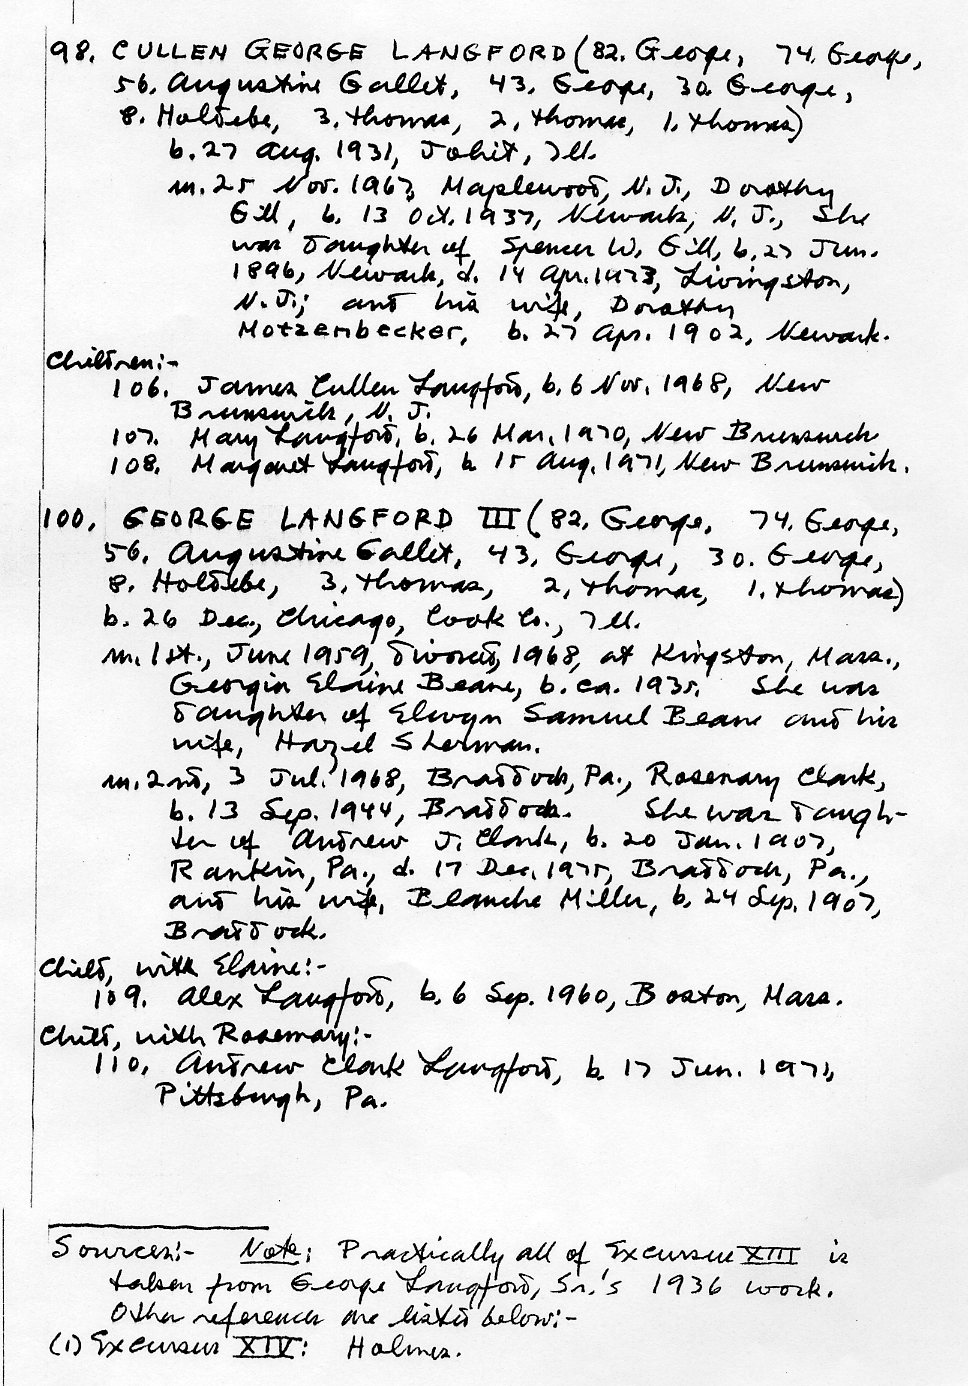 98. CULLEN GEORGE LANGFORD (82. George, 74. George,
56. Augustine Gallet, 43. George, 30. George,
8. Holdebe, 3. Thomas, 2. Thomas, 1. Thomas)
b. 27 Aug. 1931, Joliet, Ill.
m. 25 Nov. 1967, Maplewood, N.J., Dorothy
Gill, b. 13 Oct. 1937, Newark, N.J., She
was daughter of Spencer W. Gill, b. 27 Jun.
1896, Newark, d. 14 Apr. 1973, Livingston,
N.J.; and his wife, Dorothy
Motzenbecker, b. 27 Apr. 1902, Newark.
Children:-
106. James Cullen Langford, b. 6 Nov. 1968, New
Brunswick, N.J.
107. Mary Langford, b. 26 Mar. 1970, New Brunswick
108. Margaret Langford, b 15 Aug. 1971, New Brunswick.
100. GEORGE LANGFORD III (82. George, 74. George,
56. Augustine Gallet, 43. George, 30. George,
8. Holdebe, 3. Thomas, 2. Thomas, 1. Thomas)
b. 26 Dec., Chicago, Cook Co., Ill.
m. 1st., June 1959, divorced, 1968, at Kingston, Mass.,
Georgia Elaine Beane, b. ca. 1935. She was
daughter of Elwyn Samuel Beane and his
wife, Hazel Sherman.
m. 2nd, 3 Jul. 1968, Braddock, Pa., Rosemary Clark,
b. 13 Sep. 1944, Braddock. She was daugh-
ter of Andrew J. Clark, b. 20 Jan. 1907,
Rankin, Pa., d. 17 Dec. 1975, Braddock, Pa.,
and his wife, Blanche Miller, b. 24 Sep. 1907,
Braddock.
Child, with Elaine:-
109. Alex Langford, b. 6 Sep. 1960, Boston, Mass.
Child, with Rosemary:-
110. Andrew Clark Langford, b 17 Jun. 1971,
Pittsburgh, Pa.
Sources:- Note: Practically all of Excursus XIII is
taken from George Langford, Sr.'s 1936 work.
Other references are listed below:-
(1) Excursus XIV: Holmes.